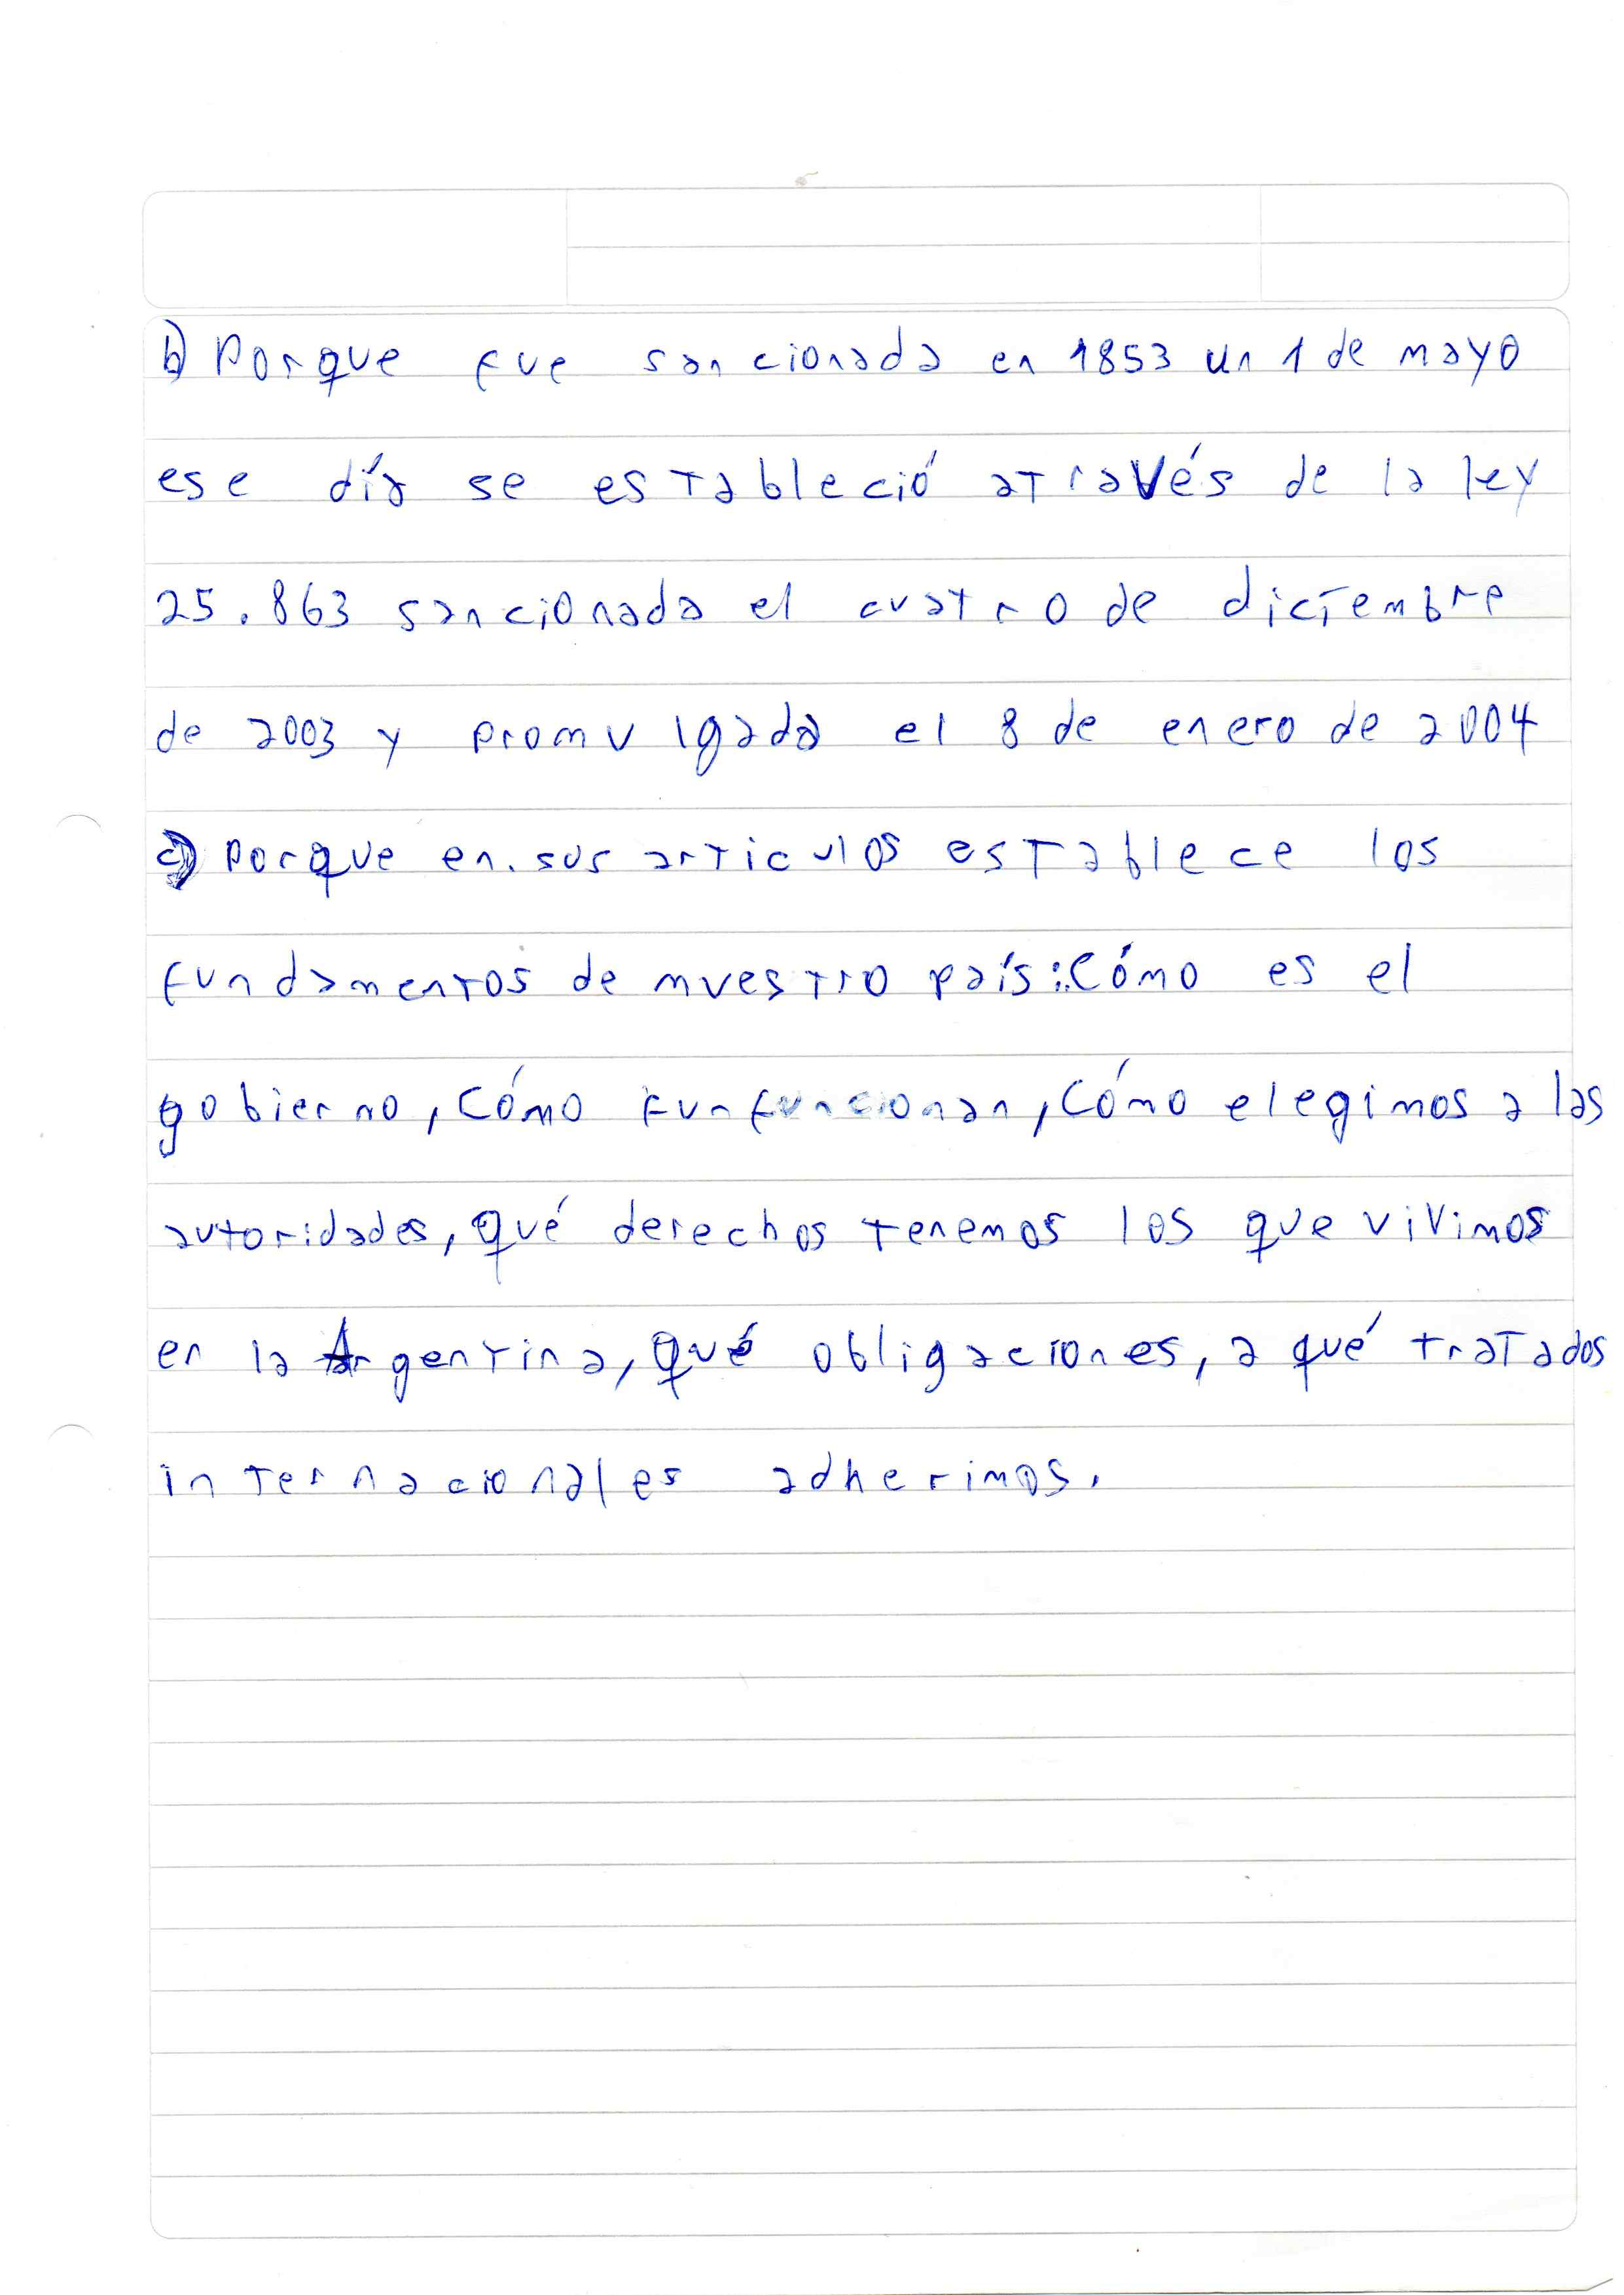 b) Porque fue sancionada en 1853 un 1 de mayo
ese día se estableció através de la ley
25.863 sancionada el cuatro de diciembre
de 2003 y promulgada el 8 de enero de 2004
c) porque en. sus articulos establece los
fundamentos de nuestro país: Cómo es el
gobierno, cómo funfuncionan, cómo elegimos a las
autoridades, qué derechos tenemos los que vivimos
en la Argentina, qué obligaciones, a qué tratados
internacionales adherimos.